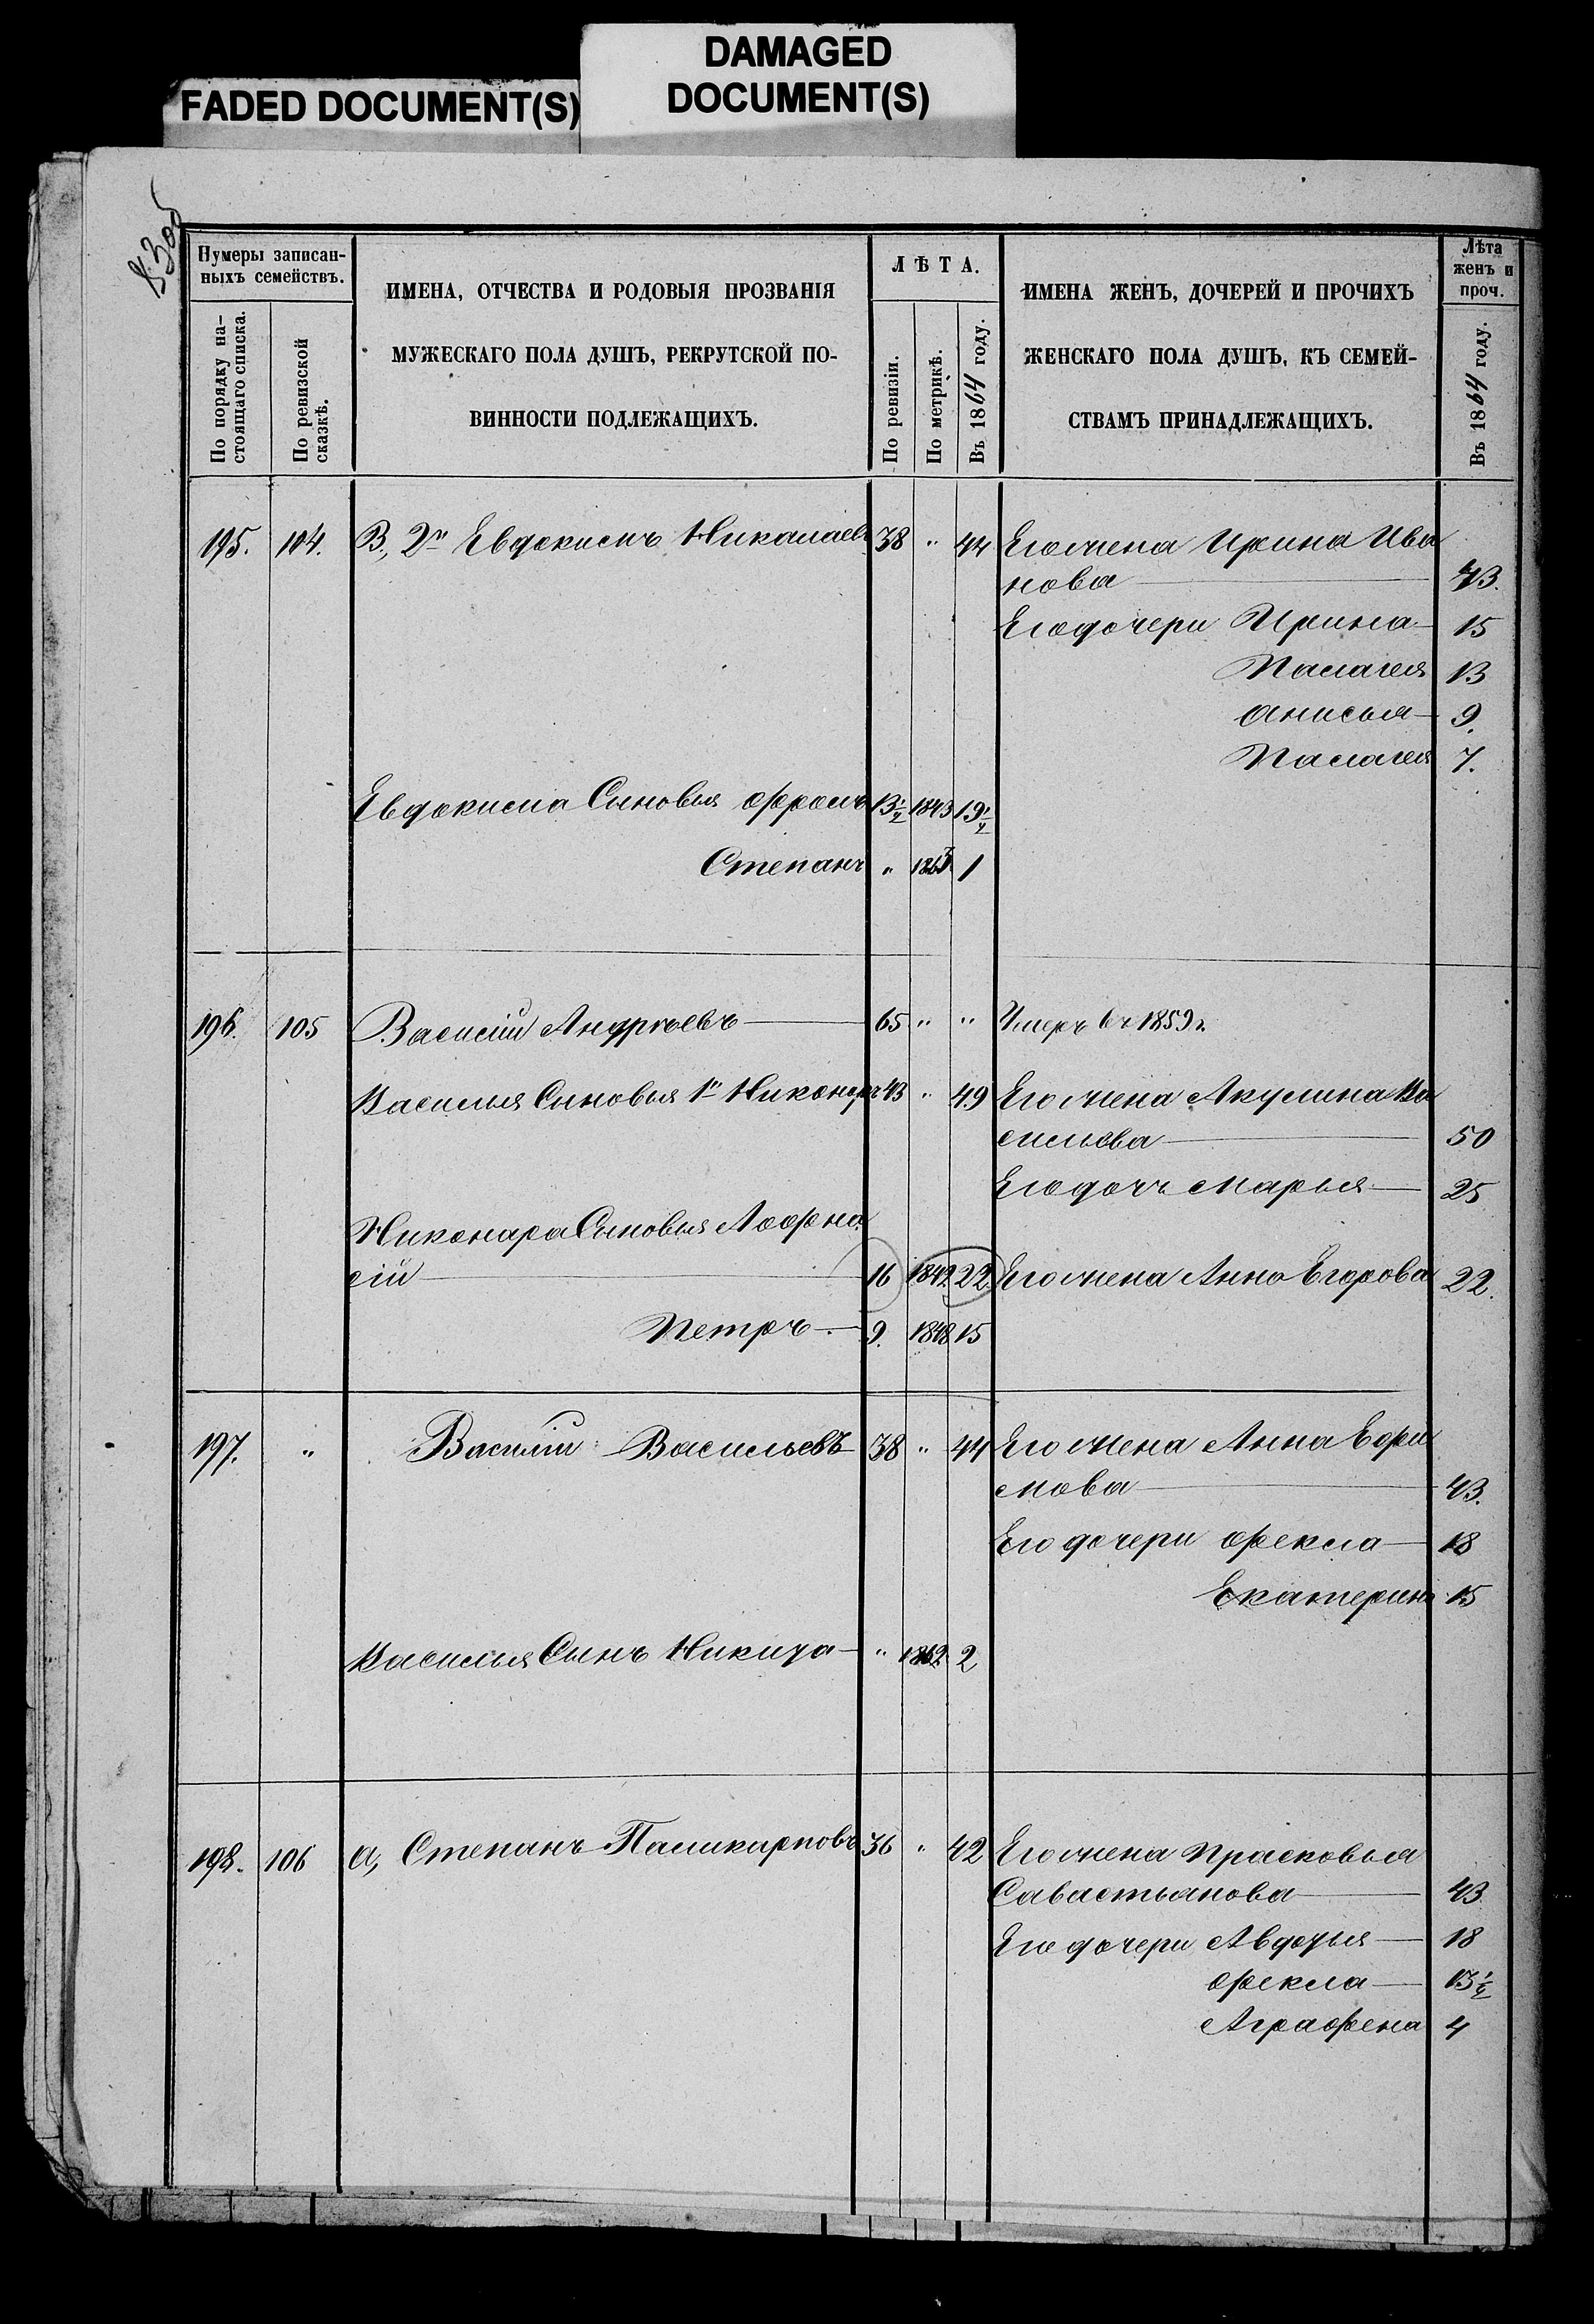 FADED DOCUMENT(S)
DAMAGED
DOCUMENT(S)
830об
Нумеры записан-
ныхъ семействъ.
По порядку на-
стоящаго списка.
По ревизской
сказкѣ.
ИМЕНА, ОТЧЕСТВА И РОДОВЫЯ ПРОЗВАНІЯ
МУЖЕСКАГО ПОЛА ДУШЪ, РЕКРУТСКОЙ ПО-
ВИННОСТИ ПОДЛЕЖАЩИХЪ.
ЛѢТА.
По ревизіи.
По метрикѣ.
Въ 1864 году.
ИМЕНА ЖЕНЪ, ДОЧЕРЕЙ И ПРОЧИХЪ
ЖЕНСКАГО ПОЛА ДУШЪ, КЪ СЕМЕЙ-
СТВАМЪ ПРИНАДЛЕЖАЩИХЪ.
Лѣта
женъ и
проч.
Въ 1864 году.
195. 104. В, 2й Евдокимъ Никалаевъ 38 " 44 Его жена Ирина Ива
нова 43.
Его дочери Ирина 15
Палагея 13
Анисья 9.
Палагея 7.
Евдокима Сыновья Фролъ 13½ 1843 19½
Степанъ " 1863 1
196. 105 Василій Андреевъ 65 " " Умеръ въ 1859 г.
Василья Сыновья 1й Никоноръ 43 " 49 Его жена Акулина Ва
сильева 50
Его дочь Марья 25
Никонара Сыновья Аофна
сій 16 1842 22 Его жена Анна Егорова 22.
Петръ 9. 1848 15
197. " Василій Васильевъ 38 " 44 Его жена Анна Ефи
мова 43.
Его дочери Фекла 18
Екатерина 15
Василья Сынъ Никита " 1862 2
198. 106 а, Степанъ Паликарповъ 36 " 42 Его жена Прасковья
Савастьянова 43
Его дочери Авдотья 18
Фекла 13½
Аграфена 4